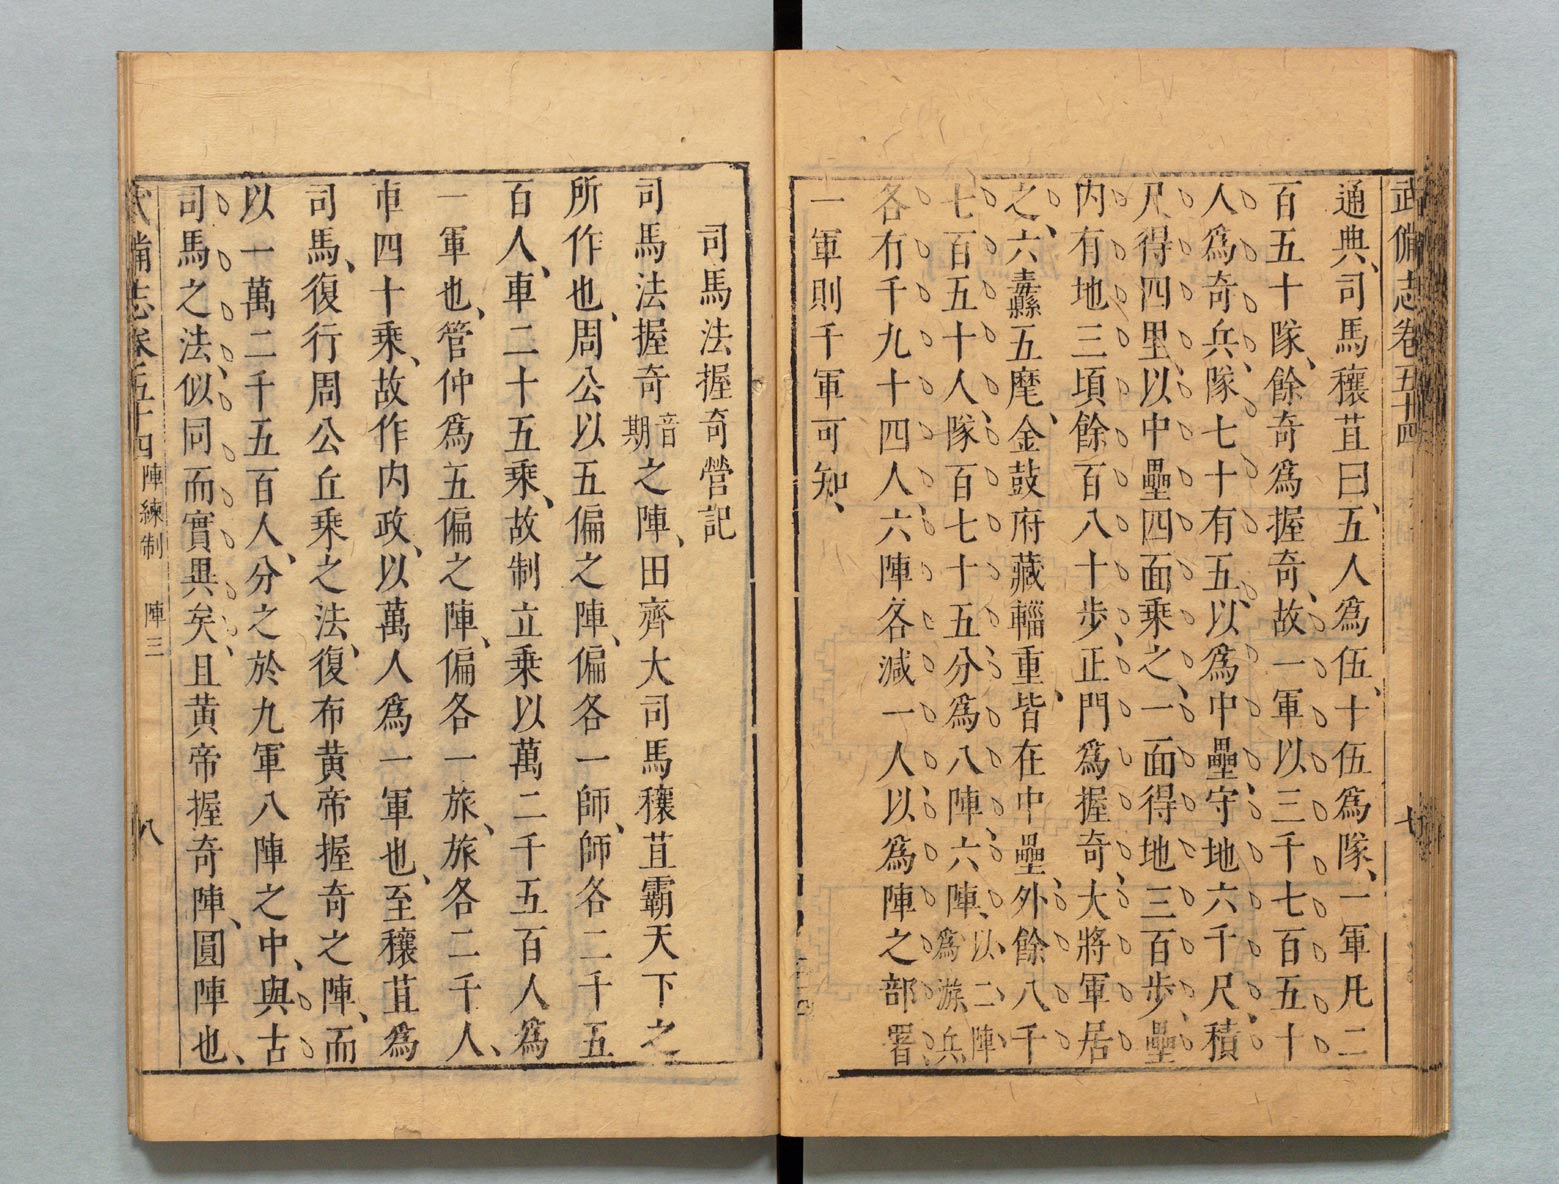 武備志卷五十四
七
通典、司馬穰苴曰、五人爲伍、十伍爲隊、一軍凡二
百五十隊、餘奇爲握奇、故一軍以三千七百五十
人爲奇兵、隊七十有五、以爲中壘、守地六千尺、積
尺得四里、以中壘四面乘之、一面得地三百步、壘
內有地三頃餘百八十步、正門爲握奇、大將軍居
之、六纛五麾、金鼓府藏輜重、皆在中壘、外餘八千
七百五十人、隊百七十五、分爲八陣、六陣、以二陣爲游兵
各有千九十四人、六陣各減一人、以爲陣之部署、
一軍則千軍可知、
司馬法握奇營記
司馬法握奇音期之陣、田齊大司馬穰苴霸天下之
所作也、周公以五偏之陣、偏各一師、師各二千五
百人、車二十五乘、故制立乘以萬二千五百人爲
一軍也、管仲爲五偏之陣、偏各一旅、旅各二千人、
車四十乘、故作內政、以萬人爲一軍也、至穰苴爲
司馬、復行周公丘乘之法、復布黃帝握奇之陣、而
以一萬二千五百人、分之於九軍八陣之中、與古
司馬之法、似同而實異矣、且黃帝握奇陣、圓陣也、
武備志卷五十四 陣練制 陣三
八